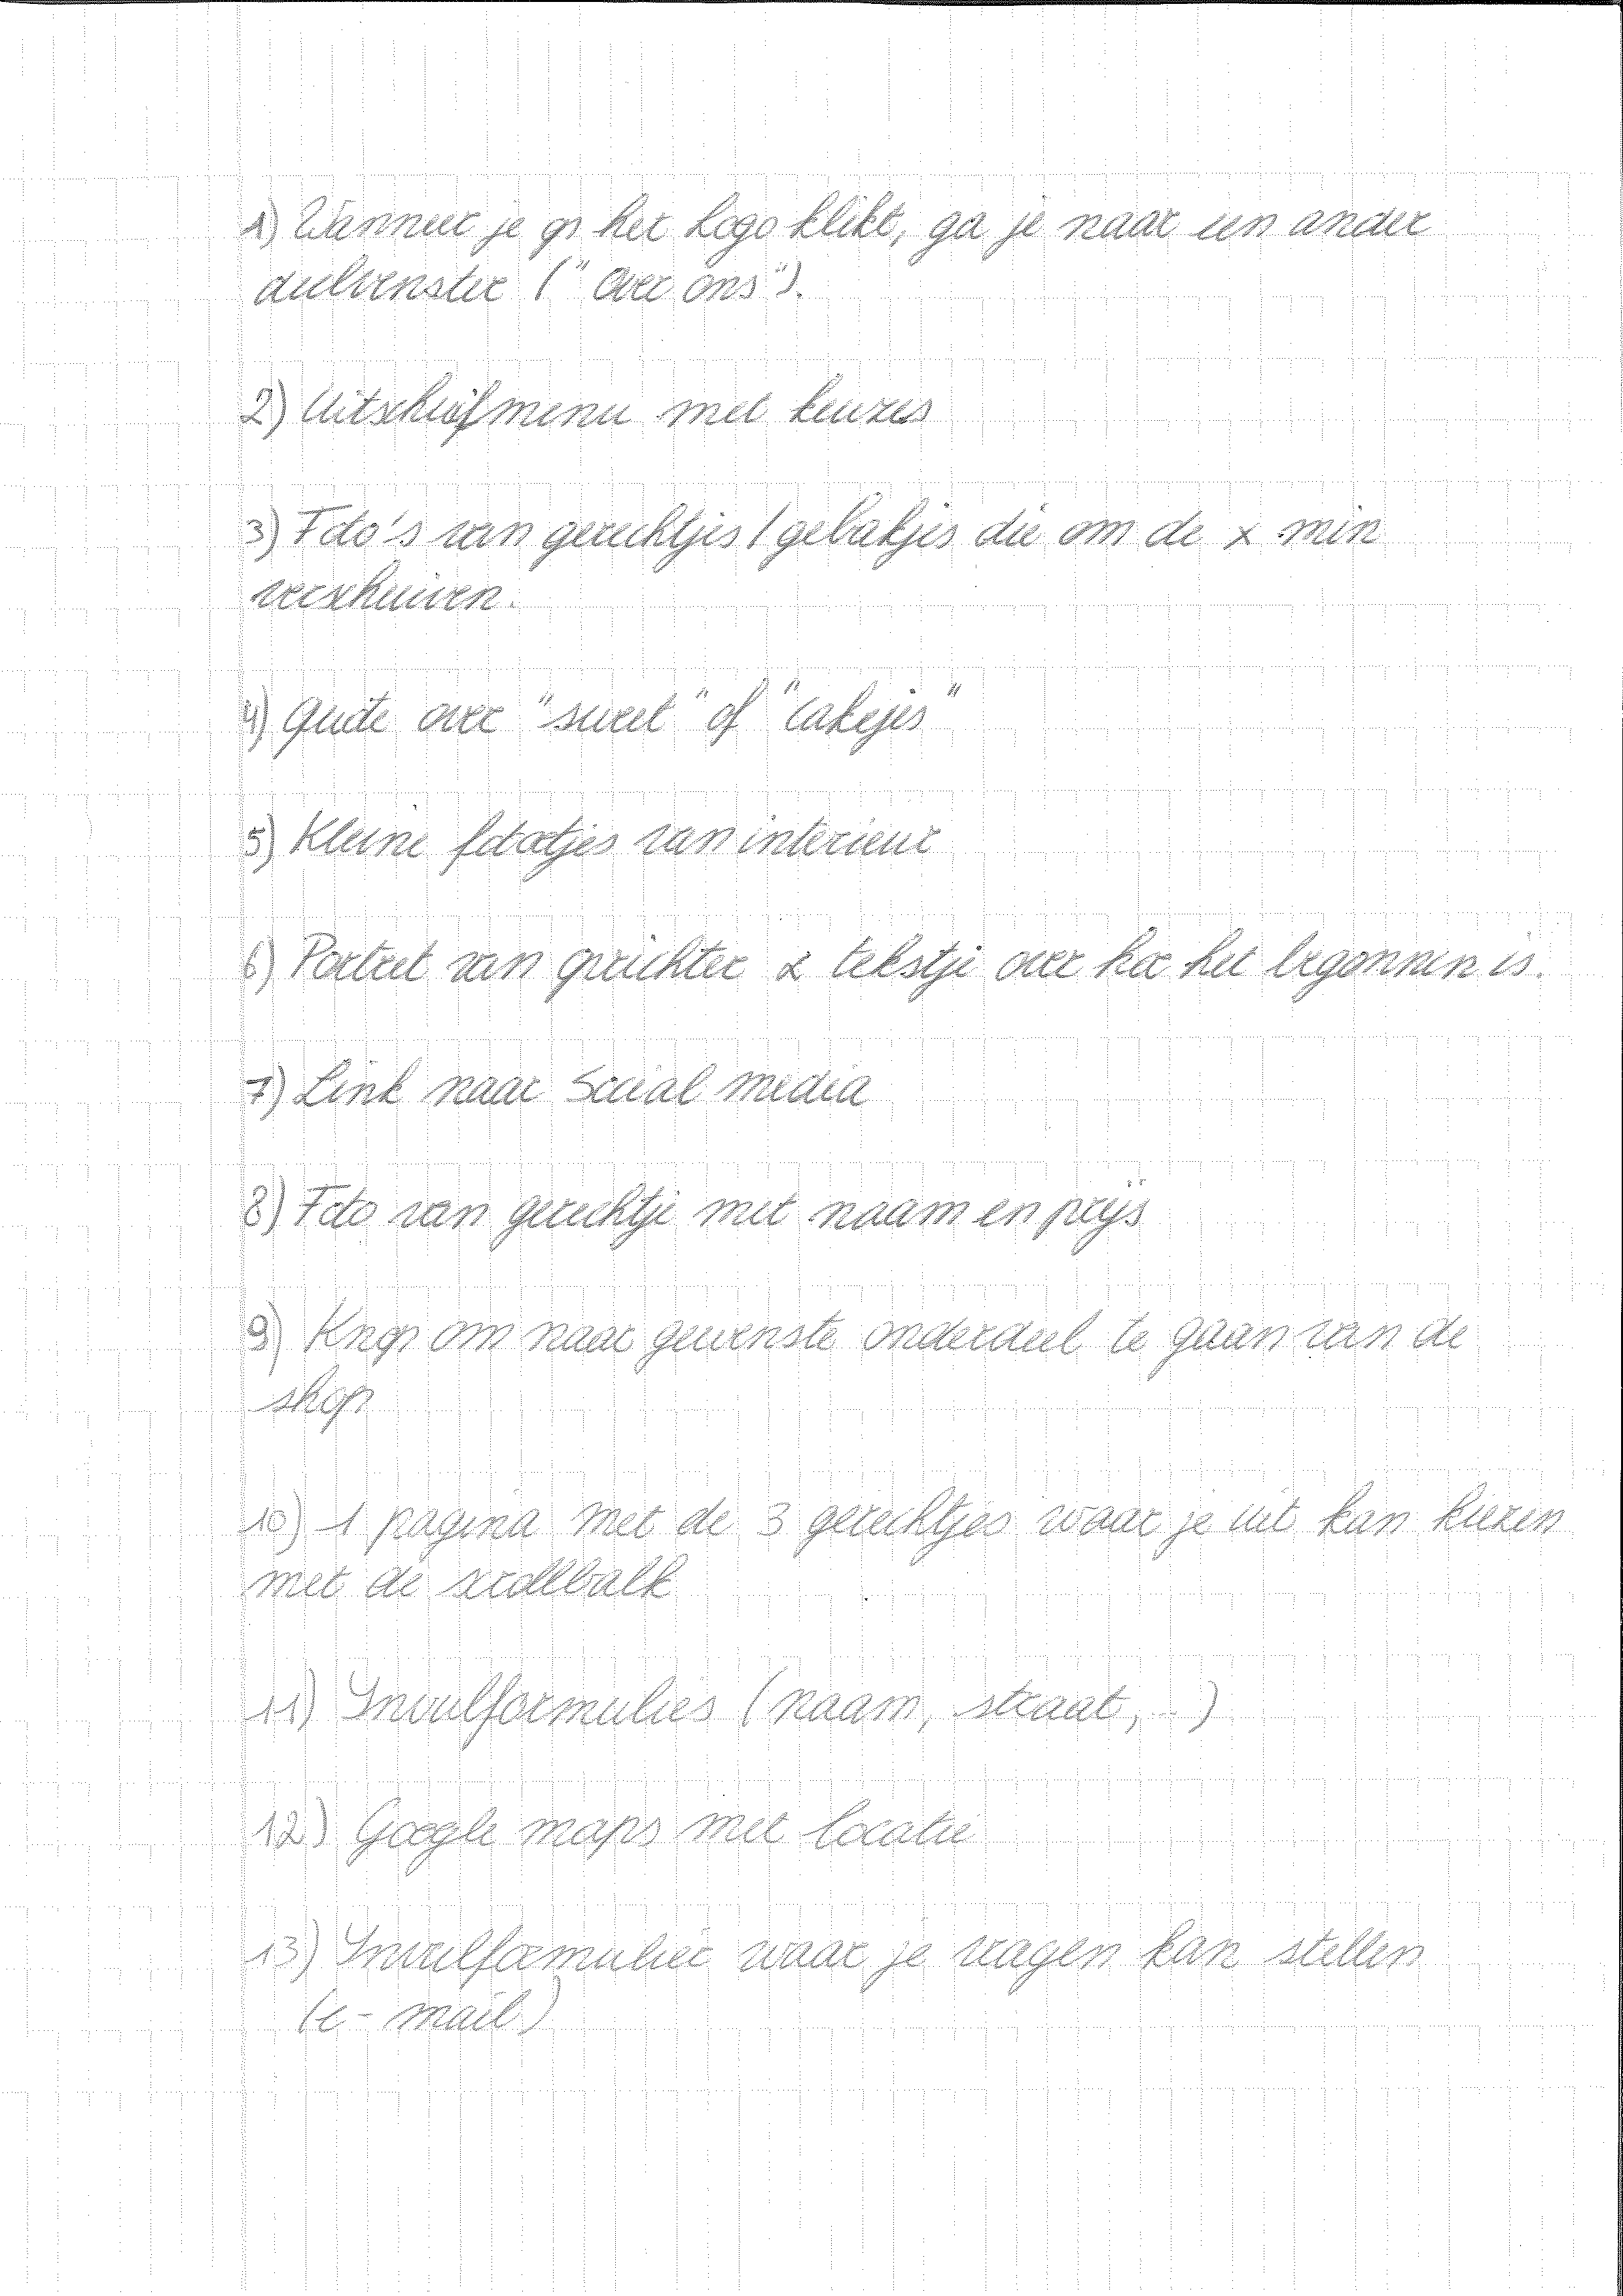 1) Wanneer je op het Logo klikt, ga je naar een ander
deelvenster ("Over ons").
2) Uitschuifmenu met keuzes
3) Foto's van gerechtjes / gebakjes die om de x min
verschuiven.
4) Quote over "sweet" of "cakejes"
5) Kleine fotootjes van interieur
6) Portret van oprichter & tekstje over hoe het begonnen is.
7) Link naar Social media
8) Foto van gerechtje met naam en prijs
9) Knop om naar gewenste onderdeel te gaan van de
shop
10) 1 pagina met de 3 gerechtjes waar je uit kan kiezen
met de scrollbalk
11) Invulformulier (naam, straat, ..)
12) Google maps met locatie
13) Invulformulier waar je vragen kan stellen
(e-mail)